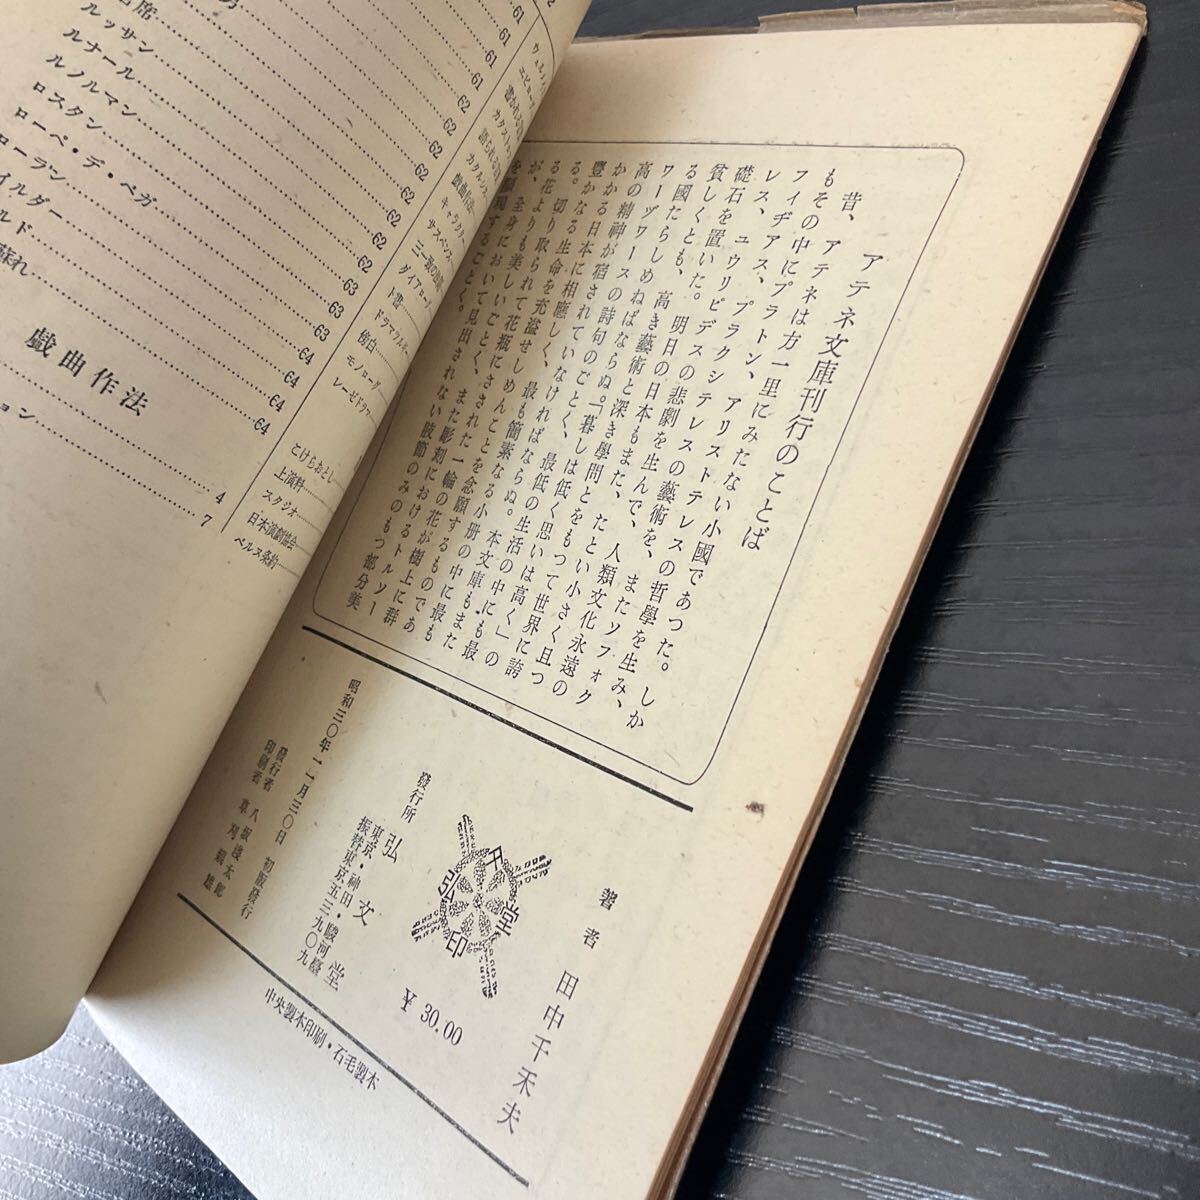 アテネ文庫刊行のことば
昔、アテネは方一里にみたない小國であつた。しか
もその中にプラトン、アリストテレスの哲學を生み、
フィヂアス、プラクシテレスの藝術を、またソフォク
レス、ユウリピデスの悲劇を生んで、人類文化永遠の
礎石を置いた。明日の日本もまた、たとい小さく且つ
貧しくとも、高き藝術と深き學問とをもつて世界に誇
る國たらしめねばならぬ。「暮しは低く思いは高く」の
ワーヅワースの詩句のごとく、最低の生活の中にも最
高の精神が宿されていなければならぬ。本文庫もまた
かかる日本に相應しく、最も簡素なる小册の中に最も
豐かなる生命を充溢せしめんことを念願するものであ
る。切り取られて花瓶にさされた一輪の花が樹上に群
る花よりも美しいごとく、また彫刻におけるトルソー
が、全身において見出されない肢節のみのもつ部分美
を顯現することく。
著者 田中千禾夫
文弘堂印
¥ 30.00
發行所 弘文堂
東京・神田・駿河臺
振替東京五三九〇九
昭和三〇年一一月三〇日 初版發行
發行者 八坂淺太郎
印刷者 草刈親雄
中央製本印刷・石毛製本
席
ルッサン
ルナール
ルノルマン
ロスタン
ローペ・デ・ベガ
ローラン
イルダー
ルド
蘇れ
61
61
61
61
62
62
62
62
62
62
63
63
64
64
64
戯曲作法
ション
4
7
キャラクター
サスペンス
三一致の法則
ダイアローグ
ト書
傍白
モノローグ
こけらおとし
上演料
スタジオ
日本演劇協会
ベルヌ条約